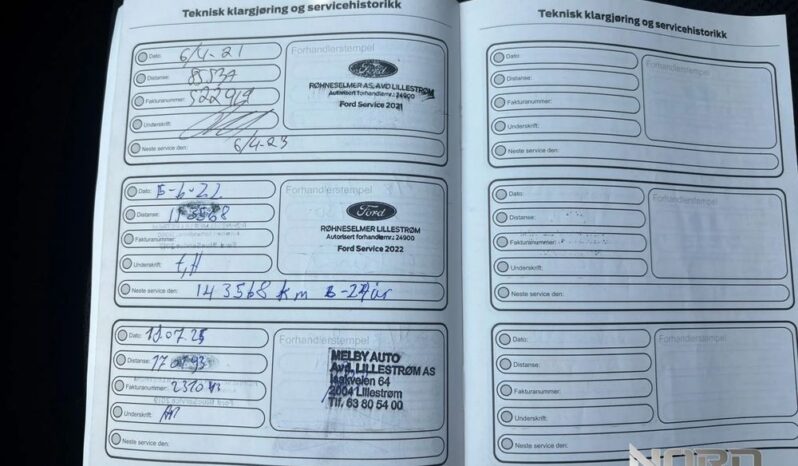 Teknisk klargjøring og servicehistorikk
Dato: 6/4-21
Distanse:
Fakturanummer: 522919
Underskrift:
Neste service den: 6/4-23
Forhandlerstempel
Ford
RØHNESELMER AS, AVD LILLESTRØM
Autorisert forhandlernr.: 24900
Ford Service 2021
Dato: -6-22
Distanse: 113568
Fakturanummer:
Underskrift:
Neste service den: 143568 km
Forhandlerstempel
Ford
RØHNESELMER LILLESTRØM
Autorisert forhandlernr.: 24900
Ford Service 2022
Dato:
Distanse:
Fakturanummer:
Underskrift:
Neste service den:
Forhandlerstempel
MELBY AUTO
Avd. LILLESTRØM AS
Isakveien 64
2004 Lillestrøm
Tlf. 63 80 54 00
Teknisk klargjøring og servicehistorikk
Dato:
Distanse:
Fakturanummer:
Underskrift:
Neste service den:
Forhandlerstempel
Dato:
Distanse:
Fakturanummer:
Underskrift:
Neste service den:
Forhandlerstempel
Dato:
Distanse:
Fakturanummer:
Underskrift:
Neste service den:
Forhandlerstempel
NORD